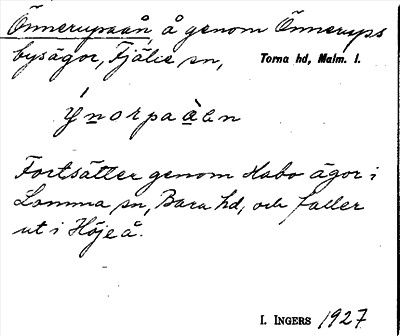 Önnerupsån, å genom Önnerups
byságor, Fjälie sn, Torna hd, Malm. l.
ýnorpaàen
Fortsätter genom Habo ägor i
Lomma sn, Bara hd, och faller
ut i Höje å.
I. INGERS 1927